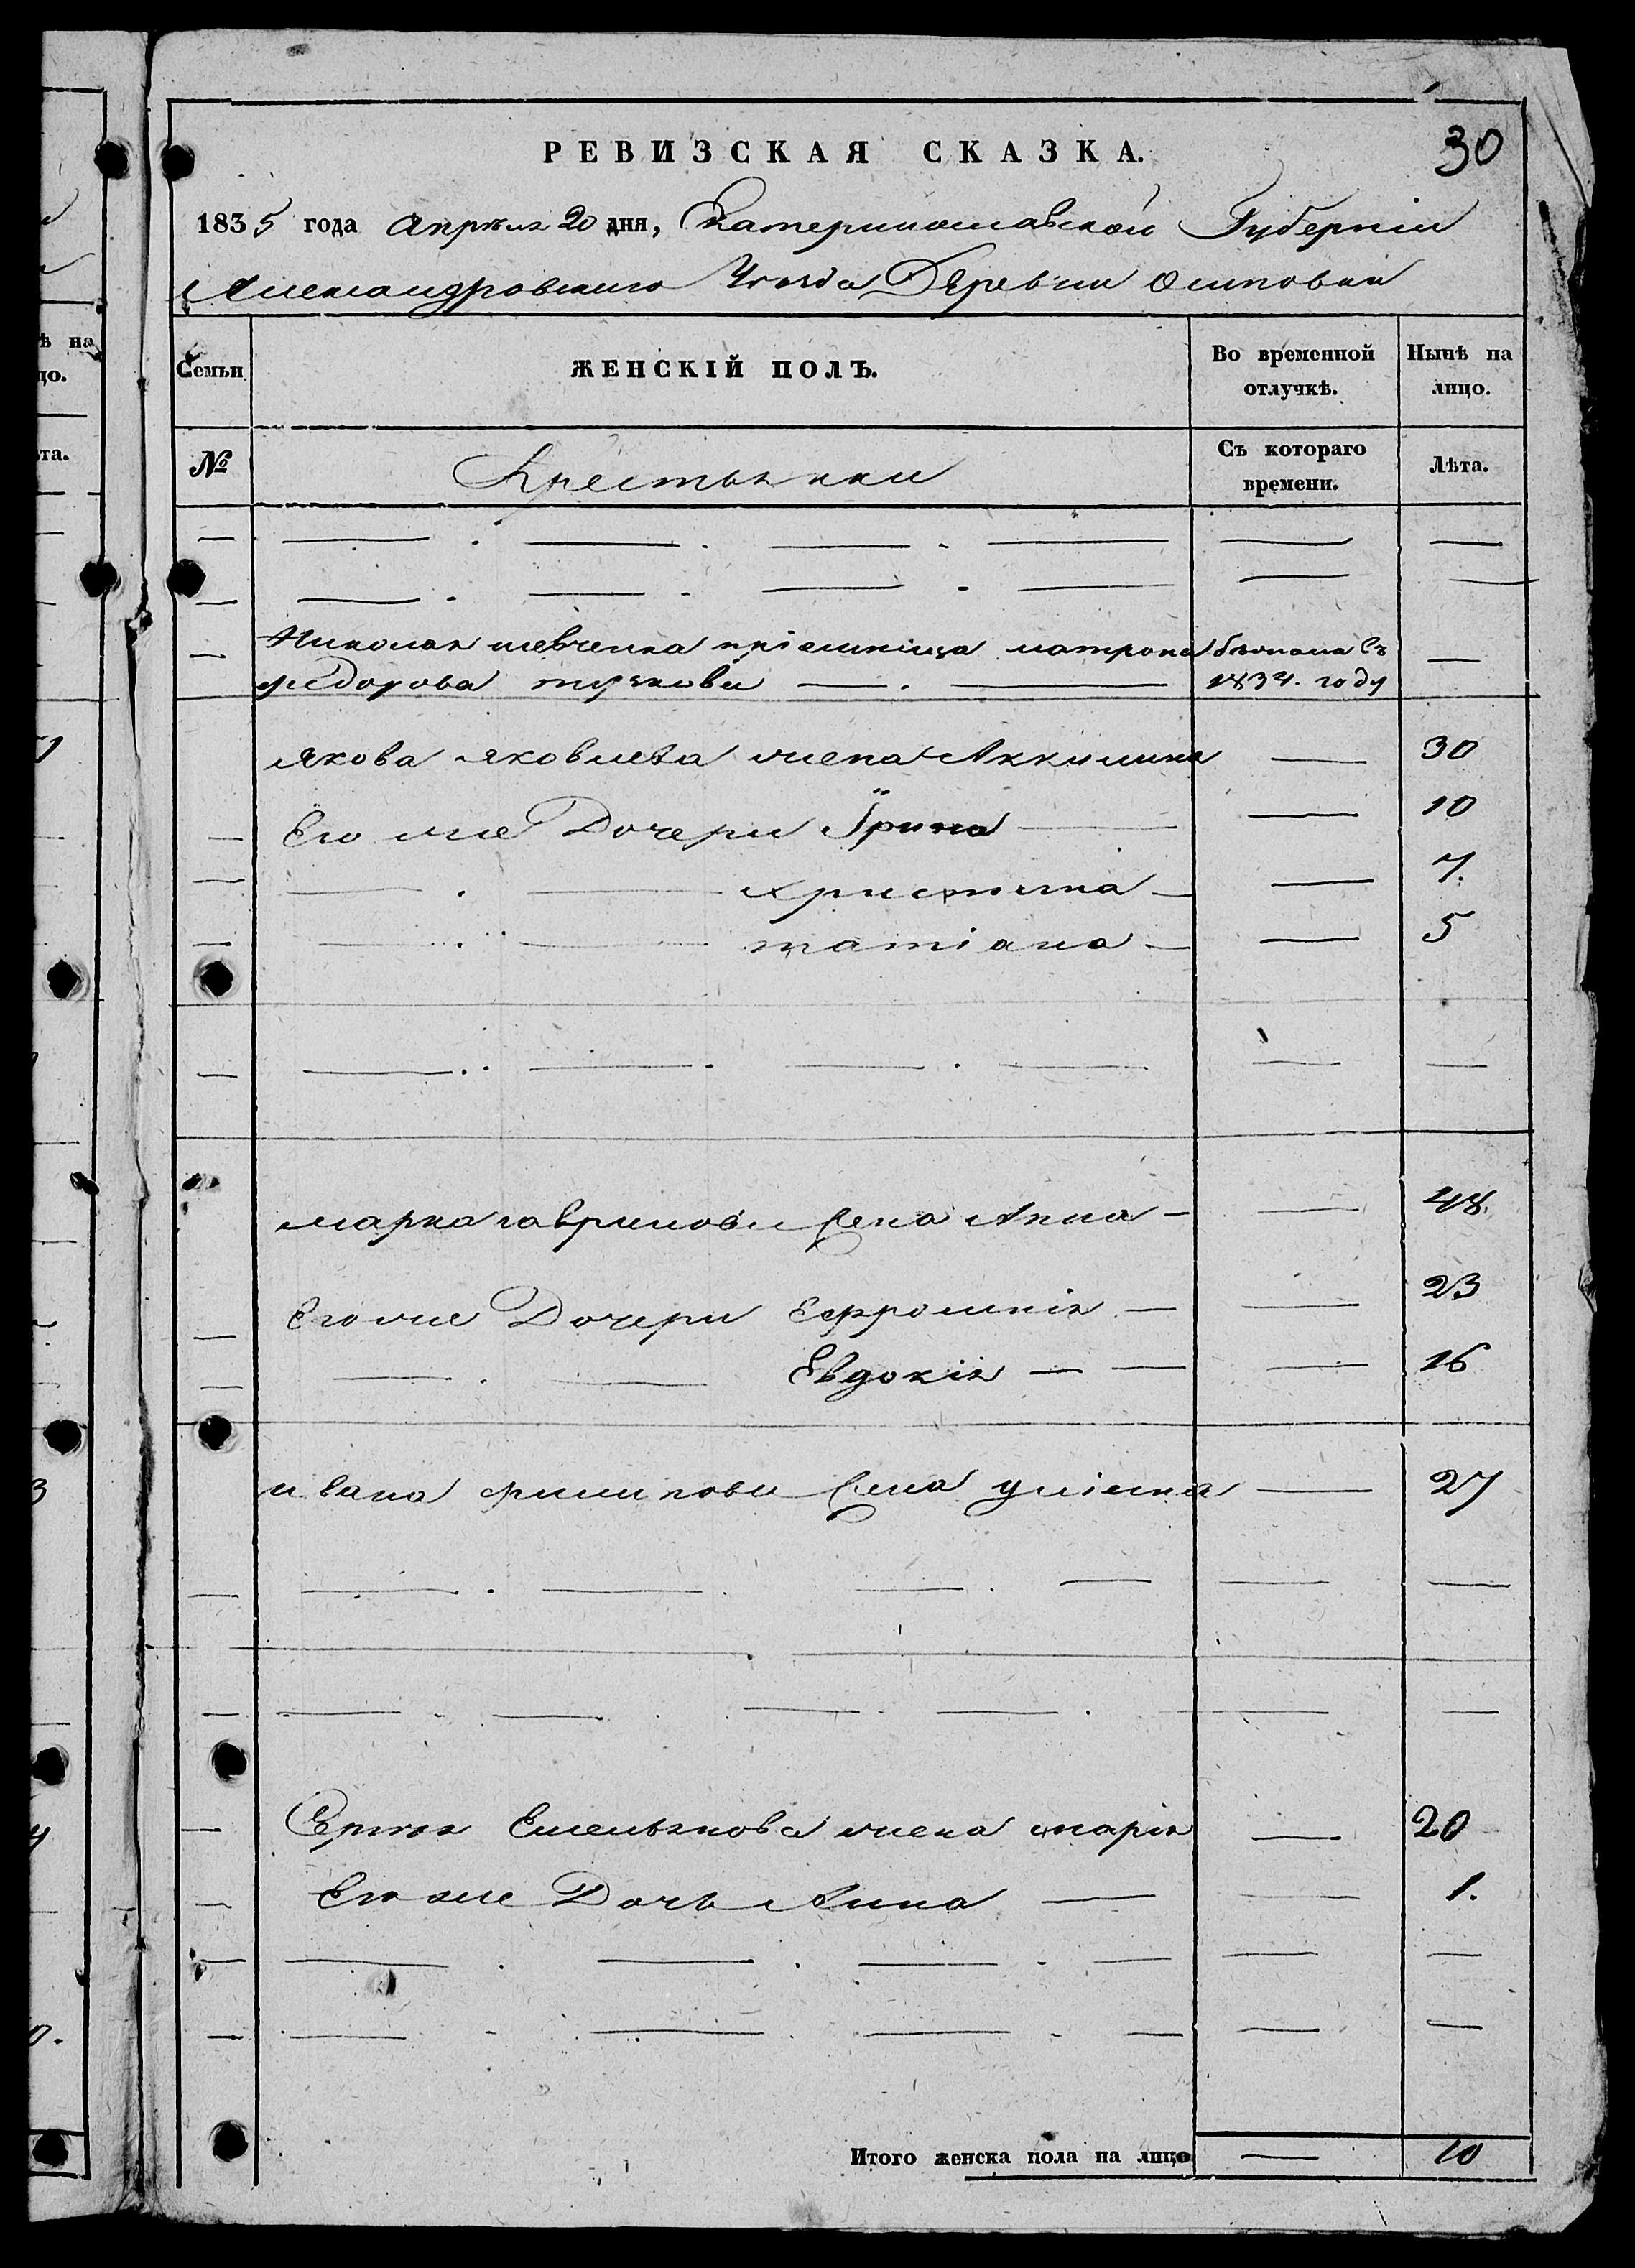 30
РЕВИЗСКАЯ СКАЗКА.
1835 года Апреля 20 дня, Екатеринославской Губерніи
Александровскаго Уезда Деревни Осиповки
Семьи
ЖЕНСКІЙ ПОЛЪ.
Во временной отлучкѣ.
Нынѣ на лицо.
№
Крестьянки
Съ котораго времени.
Лѣта.
Николая шевченка пріемница матрона бежала въ
федорова 1834. году
якова яковлева жена Аккилина — 30
Его же Дочери Ірина — 10
христина — 7.
татіана — 5
марка гаврилова жена Анна — 48.
Его же Дочери Ефросинія — 23
Евдокія — 16
ивана филипова жена уліяна — 27
Сергея Емельянова жена марія — 20
Его же Дочь Анна — 1.
Итого женска пола на лицо — 10
ѣ на
цо.
ѣта.